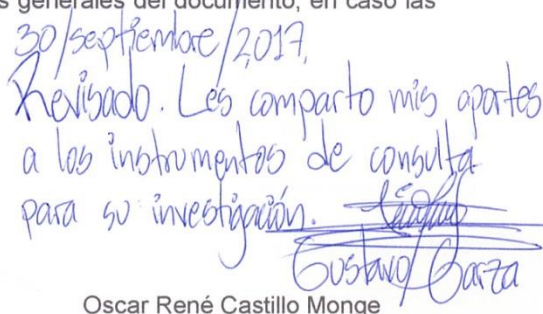 s generales del documento, en caso las
30/septiembre/2017.
Revisado. Les comparto mis aportes
a los instrumentos de consulta
para su investigación.
Gustavo Garza
Oscar René Castillo Monge